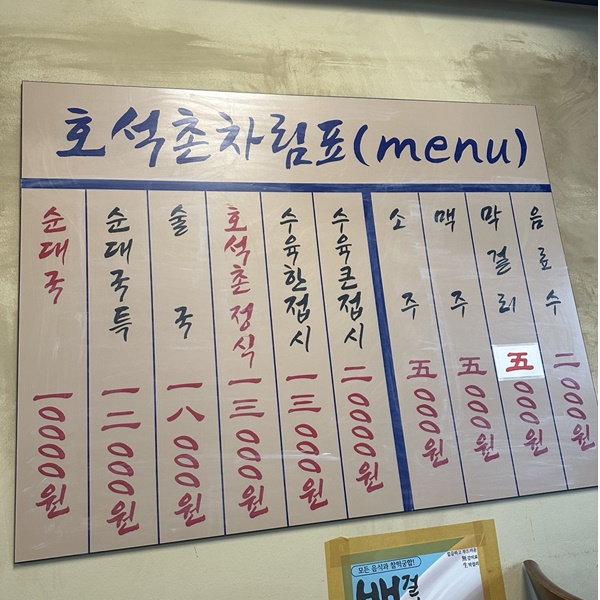 호석촌차림표(menu)
순대국 一0000원
순대국특 一二000원
술국 一八000원
호석촌정식 一三000원
수육한접시 一三000원
수육큰접시 二0000원
소주 五000원
맥주 五000원
막걸리 五000원
음료수 二000원
모든 음식과 찰떡궁합!